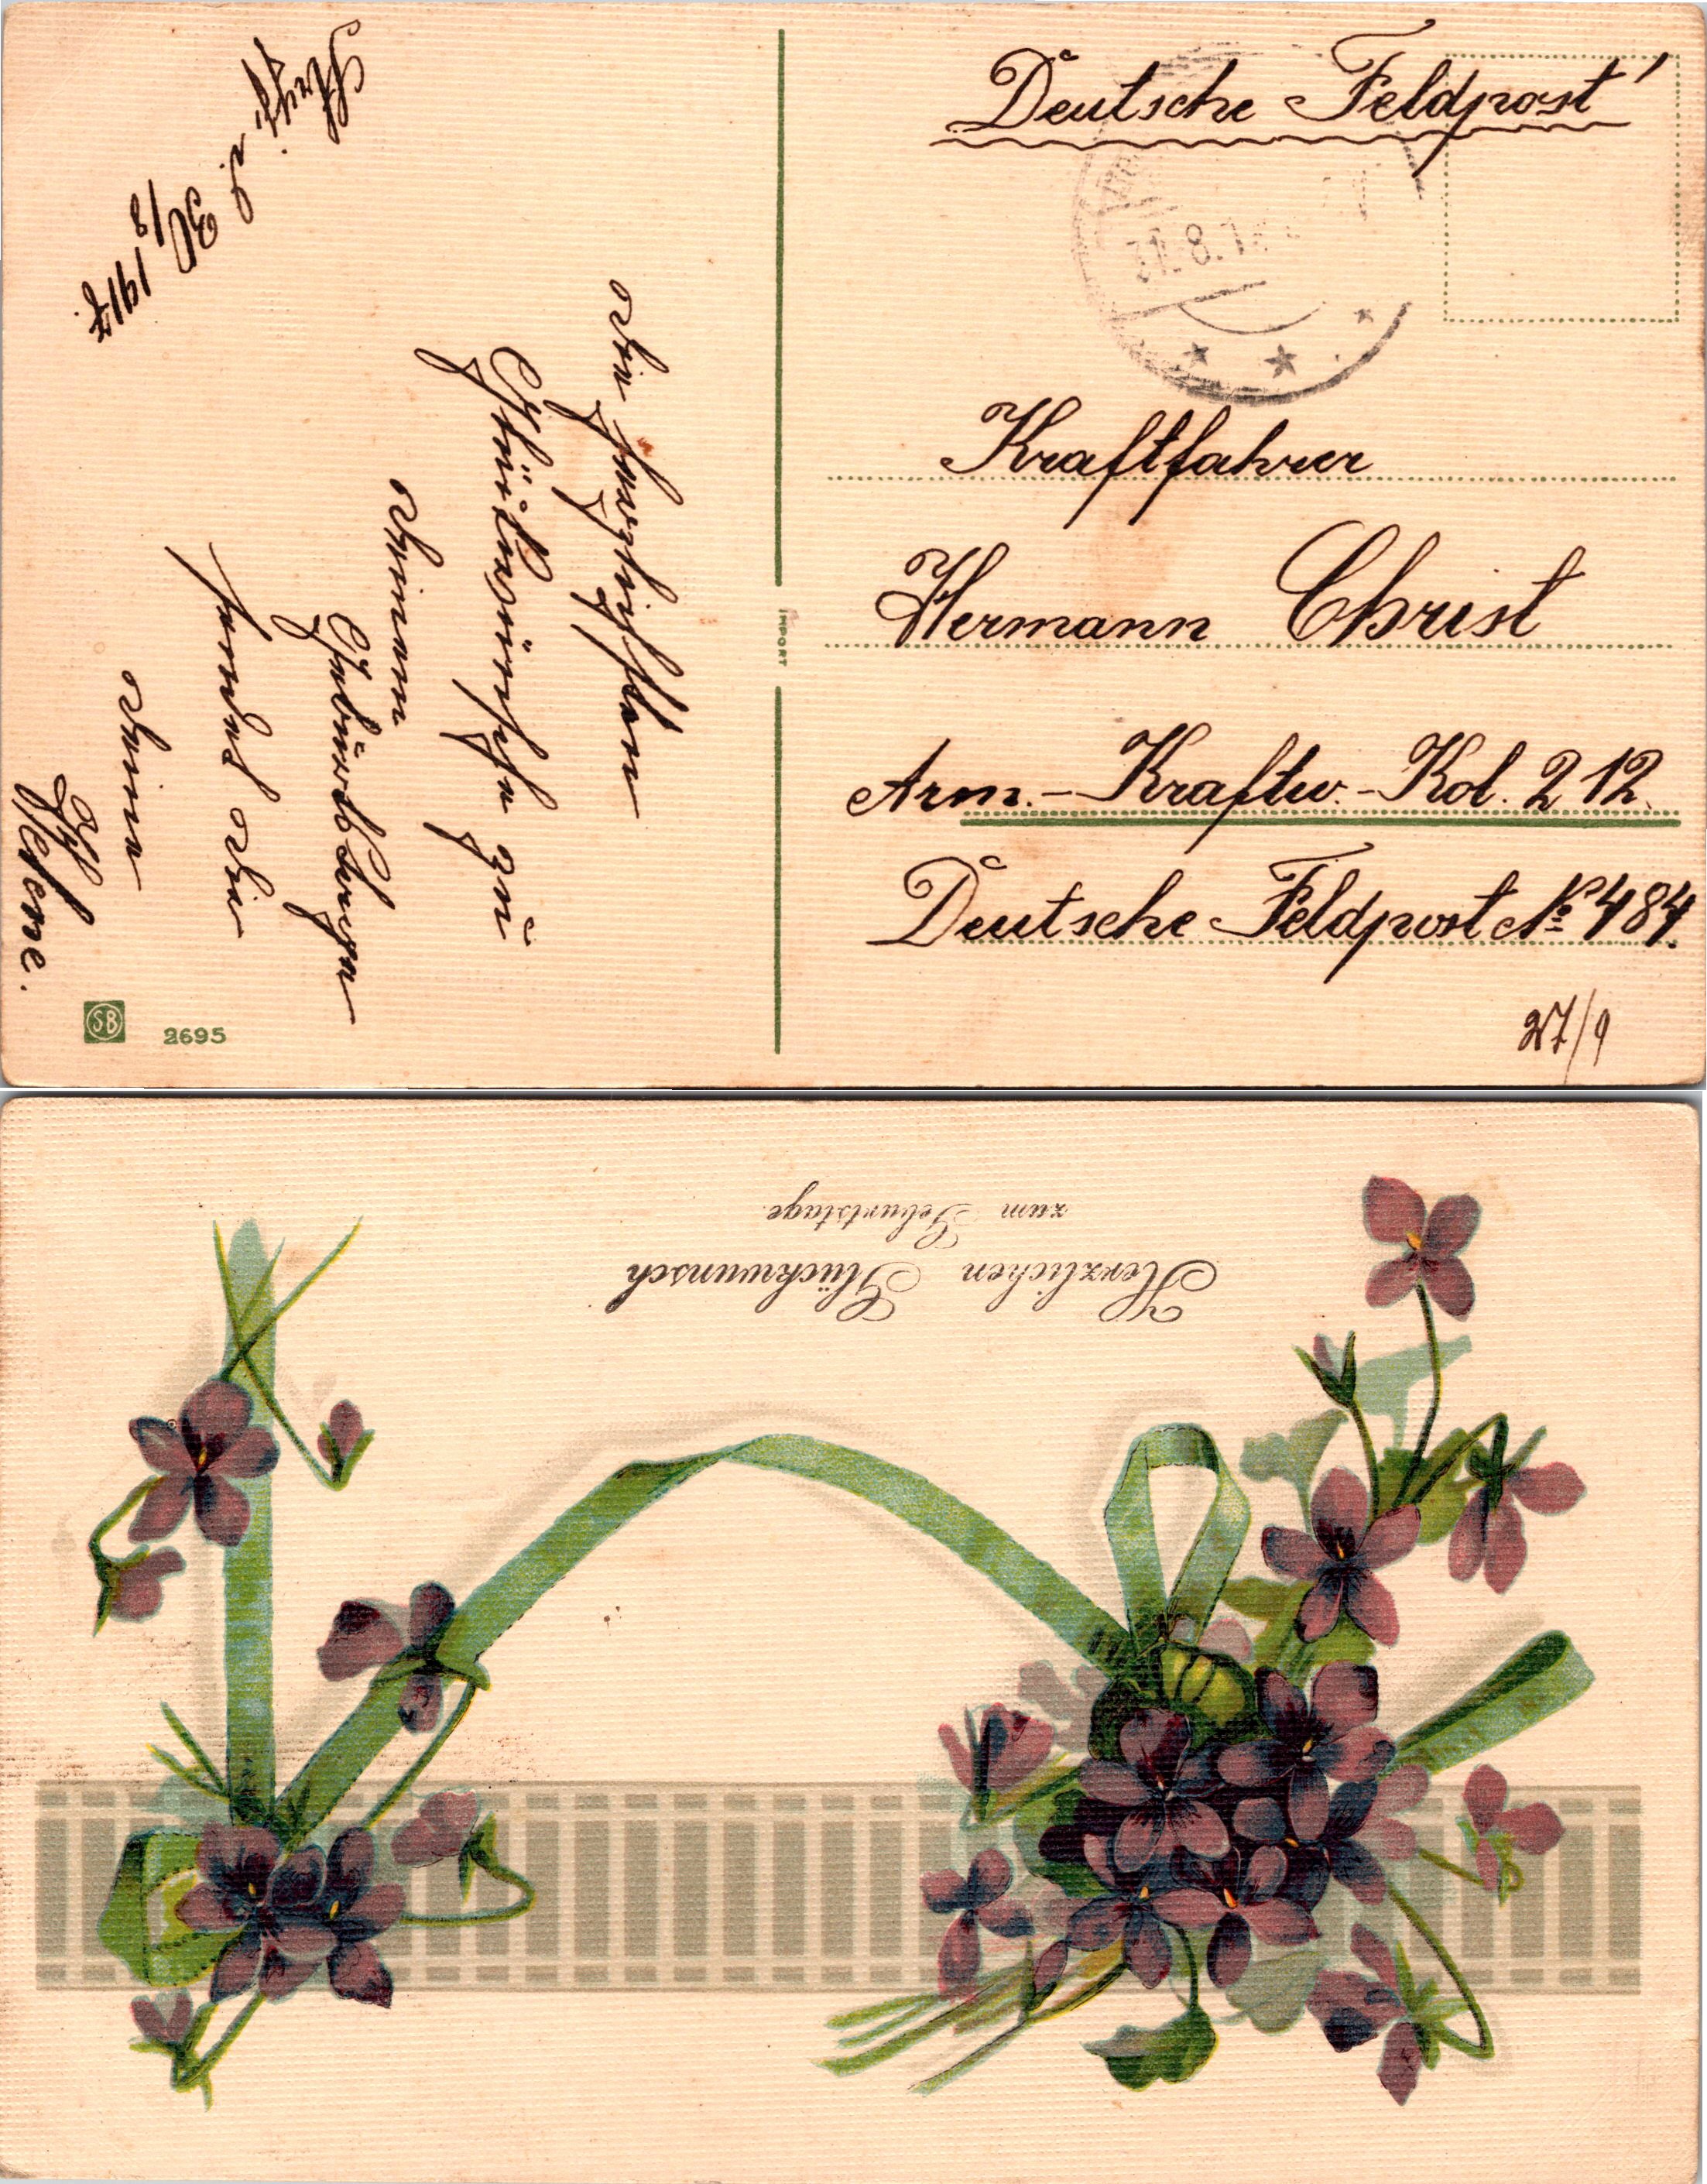 Deutsche Feldpost
31.8.1
Kraftfahrer
Hermann Christ
Arm.-Kraftw.-Kol. 212.
Deutsche Feldpost № 484.
27/9
d. 30/8 1917.
Die herzlichsten
Glückwünsche zu
deinem
Geburtstage
sendet die
deine
Helene.
IMPORT
SB 2695
Herzlichen Glückwunsch
zum Geburtstage.